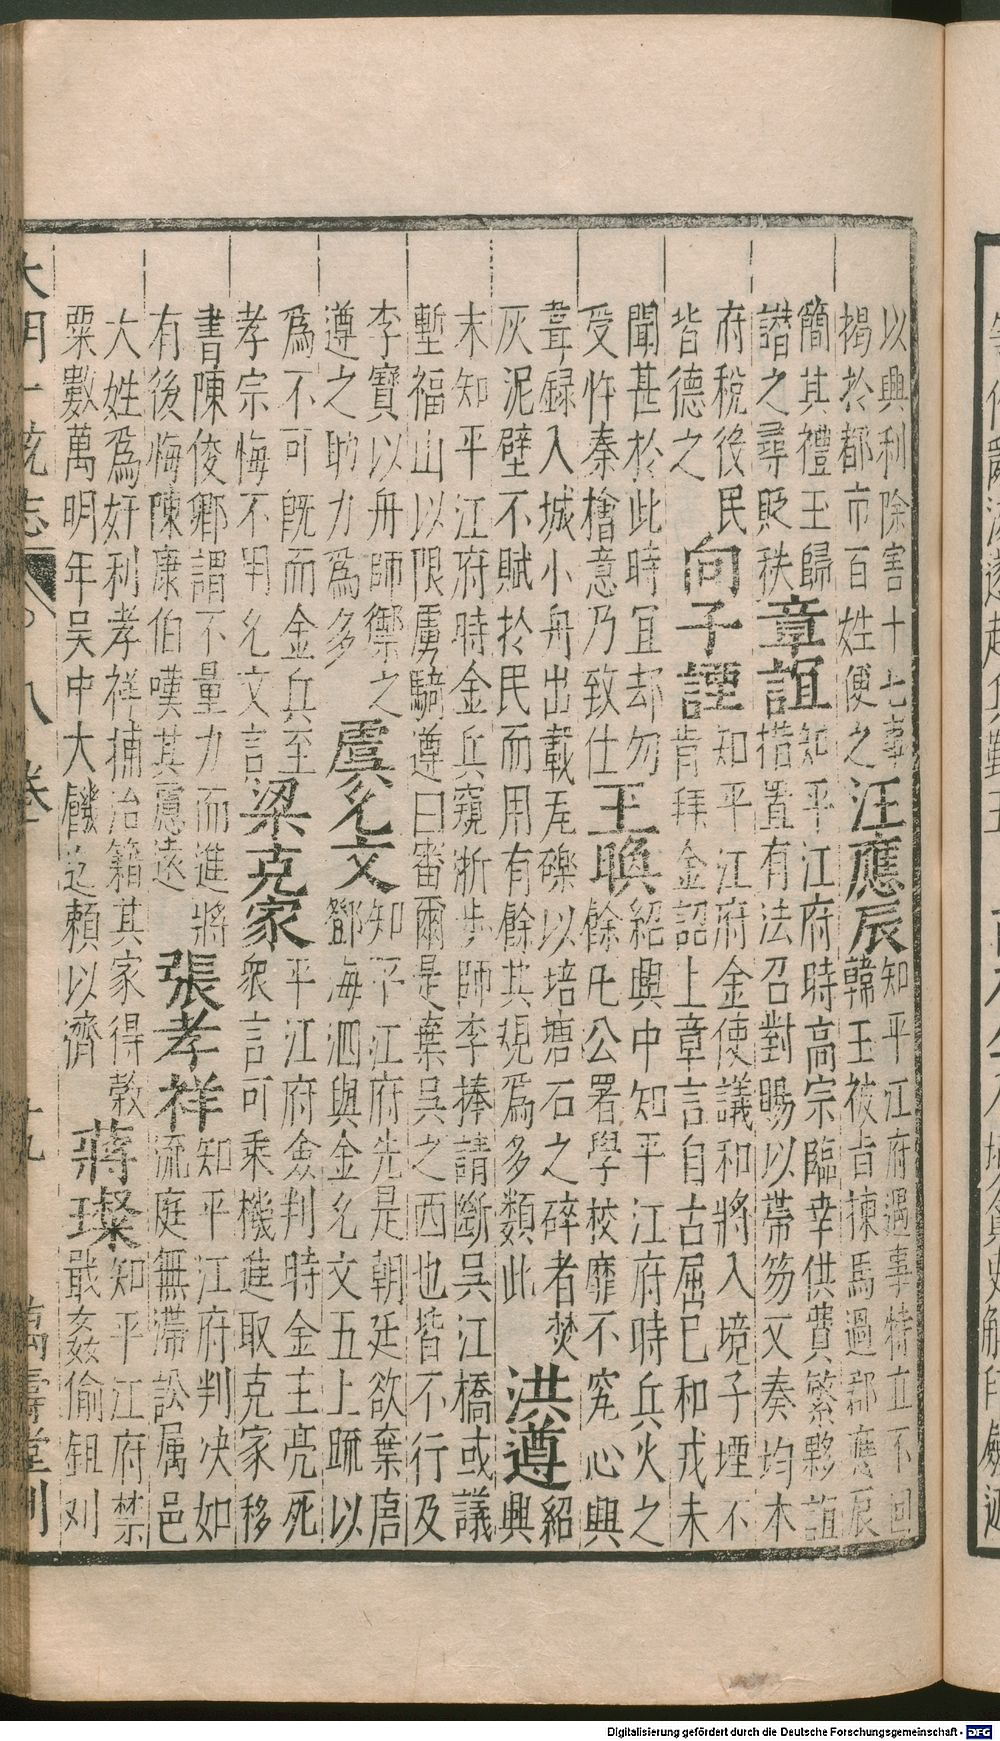 以興利除害十七事
揭於都市百姓便之
汪應辰
知平江府遇事特立不回
韓王被旨揀馬過郡應辰
簡其禮王歸
譛之尋貶秩
章誼
知平江府時高宗臨幸供費繁夥誼
措置有法召對賜以帶笏又奏均本
府稅役民
皆德之
向子諲
知平江府金使議和將入境子堙不
肯拜金詔上章言自古屈己和戎未
聞甚於此時宜却勿
受忤秦檜意乃致仕
王㬇
紹興中知平江府時兵火之
餘凡公署學校靡不究心興
葺録入城小舟出載瓦礫以培塘石之碎者焚
灰泥壁不賦於民而用有餘其規爲多類此
洪遵
紹
興
末知平江府時金兵窺浙步師李捧請斷吳江橋或議
塹福山以限虜騎遵曰審爾是棄吳之西也皆不行及
李寶以舟師禦之
遵之助力爲多
虞允文
知平江府先是朝廷欲棄唐
鄧海泗與金允文五上疏以
爲不可旣而金兵至
孝宗悔不用允文言
梁克家
平江府僉判時金主亮死
衆言可乘機進取克家移
書陳俊卿謂不量力而進將
有後悔陳康伯嘆其慮遠
張孝祥
知平江府判决如
流庭無滯訟属邑
大姓爲奸利孝祥捕治籍其家得穀
粟數萬明年吳中大饑迄賴以濟
蔣璨
知平江府禁
戢姦偷鉏刈
大明一統志 八卷 十九 萬壽堂刊
Digitalisierung gefördert durch die Deutsche Forschungsgemeinschaft - DFG